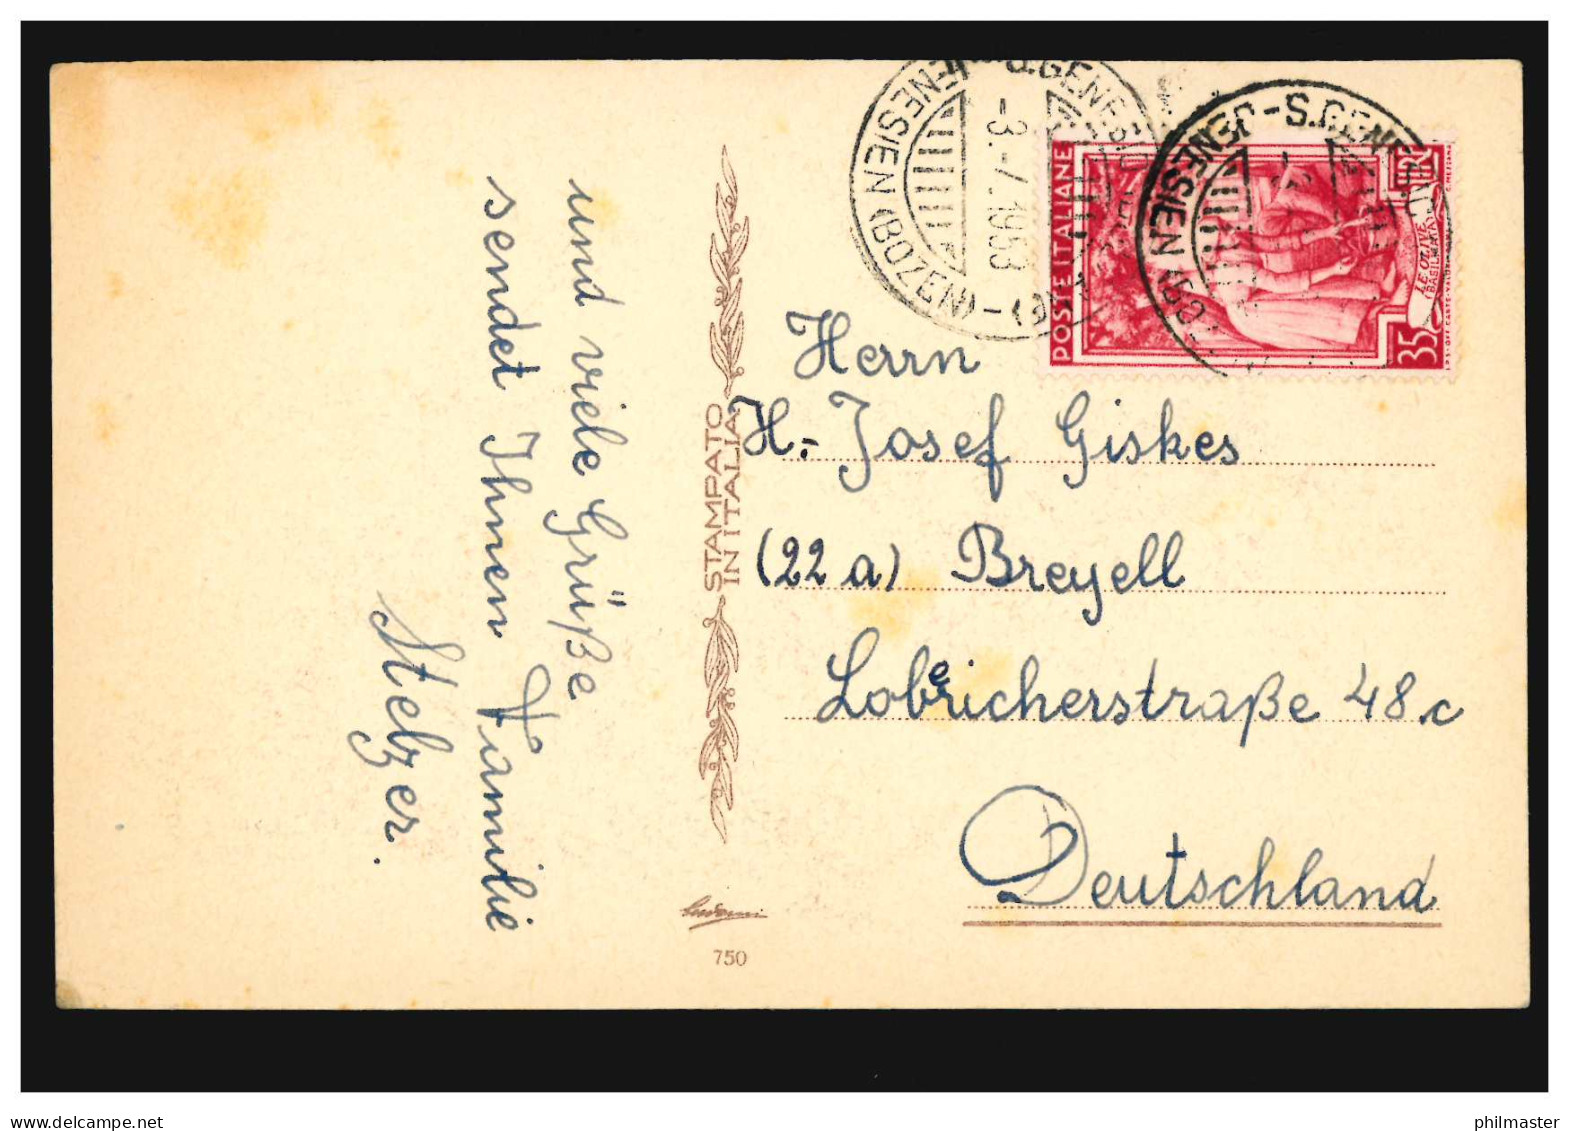 und viele Grüße
sendet Ihnen Familie
Stelzer.
STAMPATO
IN ITALIA
750
-3.-7.1953
JENESIEN (BOZEN)
POSTE ITALIANE
LIRE
35
LE OLIVE
(BASILICATA)
Herrn
H.-Josef Giskes
(22a) Breyell
Lobericherstraße 48c
Deutschland
delcampe.net
philmaster